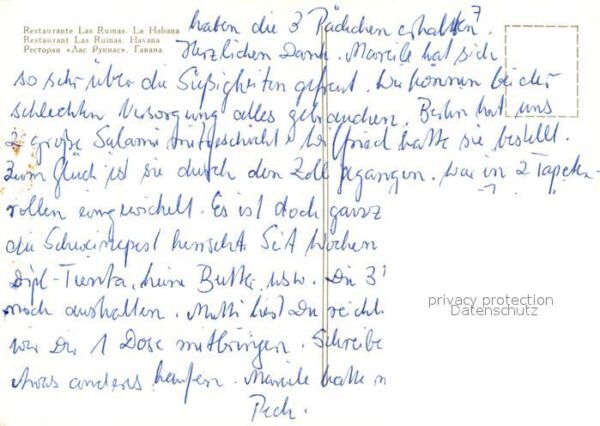 Restaurante Las Ruinas. La Habana
Restaurant Las Ruinas. Havana
Ресторан «Лас Руинас». Гавана
haben die 3 Pädchen erhalten?
Herzlichen Dank. Mareile hat sich
so sehr über die Süßigkeiten gefreut. Wir können bei der
schlechten Versorgung alles gebrauchen. Berlin hat uns
2 große Salami mitgeschickt. Wilfried hatte sie bestellt.
Zum Glück ist sie durch den Zoll gegangen. War in 2 Tapeten-
rollen eingewickelt. Es ist doch ganz
die Schweinepest herrscht. Seit Wochen
keine Butter usw. Die 3
noch aushalten. Mutti liest Du
wir Dir 1 Dose mitbringen. Schreibe
etwas anders kaufen. Mareile hatte
Pech.
privacy protection
Datenschutz